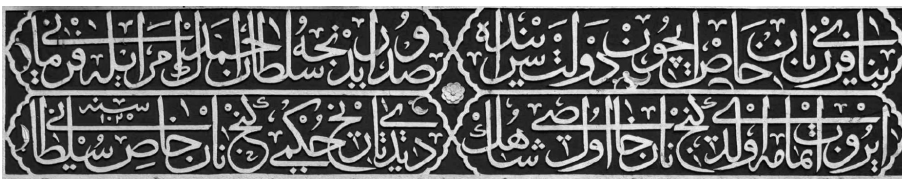 بنای فرن نان خاص ایچون دولت سراینده صدور ایدنجه سلطان احمدك امر ایله فرمانی
ایروب اتمامه اولدی كنج نان خاصی اول شاهك دیدی تاریخ حكمی كنج نان خاص سلطانی سنه ١٠٢٥